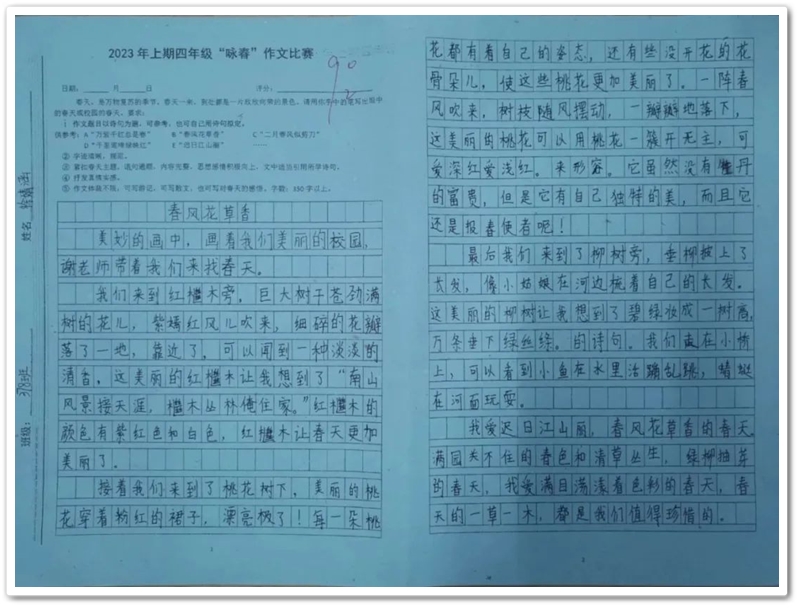 2023年上期四年级“咏春”作文比赛
90
日期：____月____日 评价：
春天，是万物复苏的季节，春天一来，到处都是一片欣欣向荣的景色，请用你手中的笔写出你眼中
的春天或校园的春天，要求：
1 作文题目以诗句为题，可参考，也可自己用诗句拟定。
供参考：A“万紫千红总是春” B“春风花草香” C“二月春风似剪刀”
D“千里莺啼绿映红” E“迟日江山丽”
② 字迹清晰，端正。
③ 紧扣春天主题，语句通顺，内容完整，思想感情积极向上，文中适当引用所学诗句。
④ 抒发真情实感。
⑤ 作文体裁不限，可写游记，可写散文，也可写对春天的感悟，字数：350字以上。
姓名
班级：378班
春风花草香
美妙的画中，画着我们美丽的校园，
谢老师带着我们来找春天。
我们来到红檵木旁，巨大树子苍劲满
树的花儿，紫嫣红风儿吹来，细碎的花瓣
落了一地，靠近了，可以闻到一种淡淡的
清香，这美丽的红檵木让我想到了“南山
风景接天涯，檵木丛林倚住家。”红檵木的
颜色有紫红色和白色，红檵木让春天更加
美丽了。
接着我们来到了桃花树下，美丽的桃
花穿着粉红的裙子，漂亮极了！每一朵桃
花都有着自己的姿态，还有些没开花的花
骨朵儿，使这些桃花更加美丽了。一阵春
风吹来，树枝随风摆动，一瓣瓣地落下，
这美丽的桃花可以用桃花一簇开无主，可
爱深红爱浅红。来形容。它虽然没有牡丹
的富贵，但是它有自己独特的美，而且它
还是报春使者呢！
最后我们来到了柳树旁，垂柳披上了
长发，像小姑娘在河边梳着自己的长发。
这美丽的柳树让我想到了碧绿妆成一树高
万条垂下绿丝绦。的诗句。我们走在小桥
上，可以看到小鱼在水里活蹦乱跳，蜻蜓
在河面玩耍。
我爱迟日江山丽，春风花草香的春天。
满园关不住的春色和清草丛生，绿柳抽芽
的春天，我爱满目荡漾着色彩的春天，春
天的一草一木，都是我们值得珍惜的。